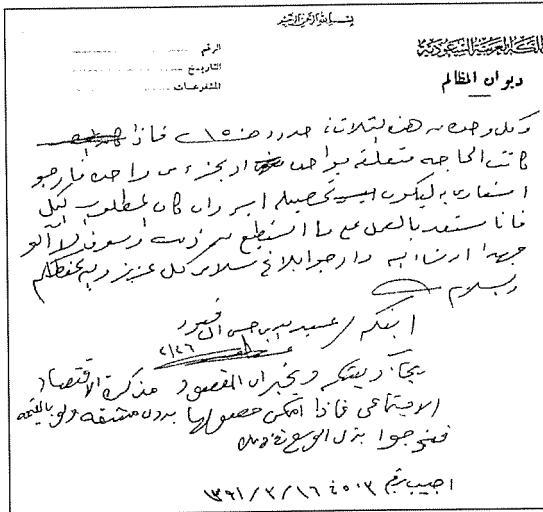 بسم الله الرحمن الرحيم
المملكة العربية السعودية
ديوان المظالم
الرقم
التاريخ
المشفوعات
وكل وحدة من هذه الثلاث في حدود ١٥ فاذا
كانت الحاجة متعلقة بواحدة او بجزء من واحدة فارجو
اشعاري به ليكون تحصيله ايسر وان كان المطلوب الكل
فانا مستعد بالعمل على ما استطيع من ذلك وسوف لا آلو
جهدا ان شاء الله وارجو ابلاغ سلامي كل عزيز والله يحفظكم
والسلام
ابنكم / بن حسن ال قعود
٢/٢٦
ونخبره ان المقصود مذكرة الاقتصاد
الاجتماعي فاذا امكن حصولها بدون مشقه ولو بالقيمه
فنرجوا بذل الوسع في ذلك
اجيب برقم ٤٥٠٣ ١٦/٣/١٣٩١